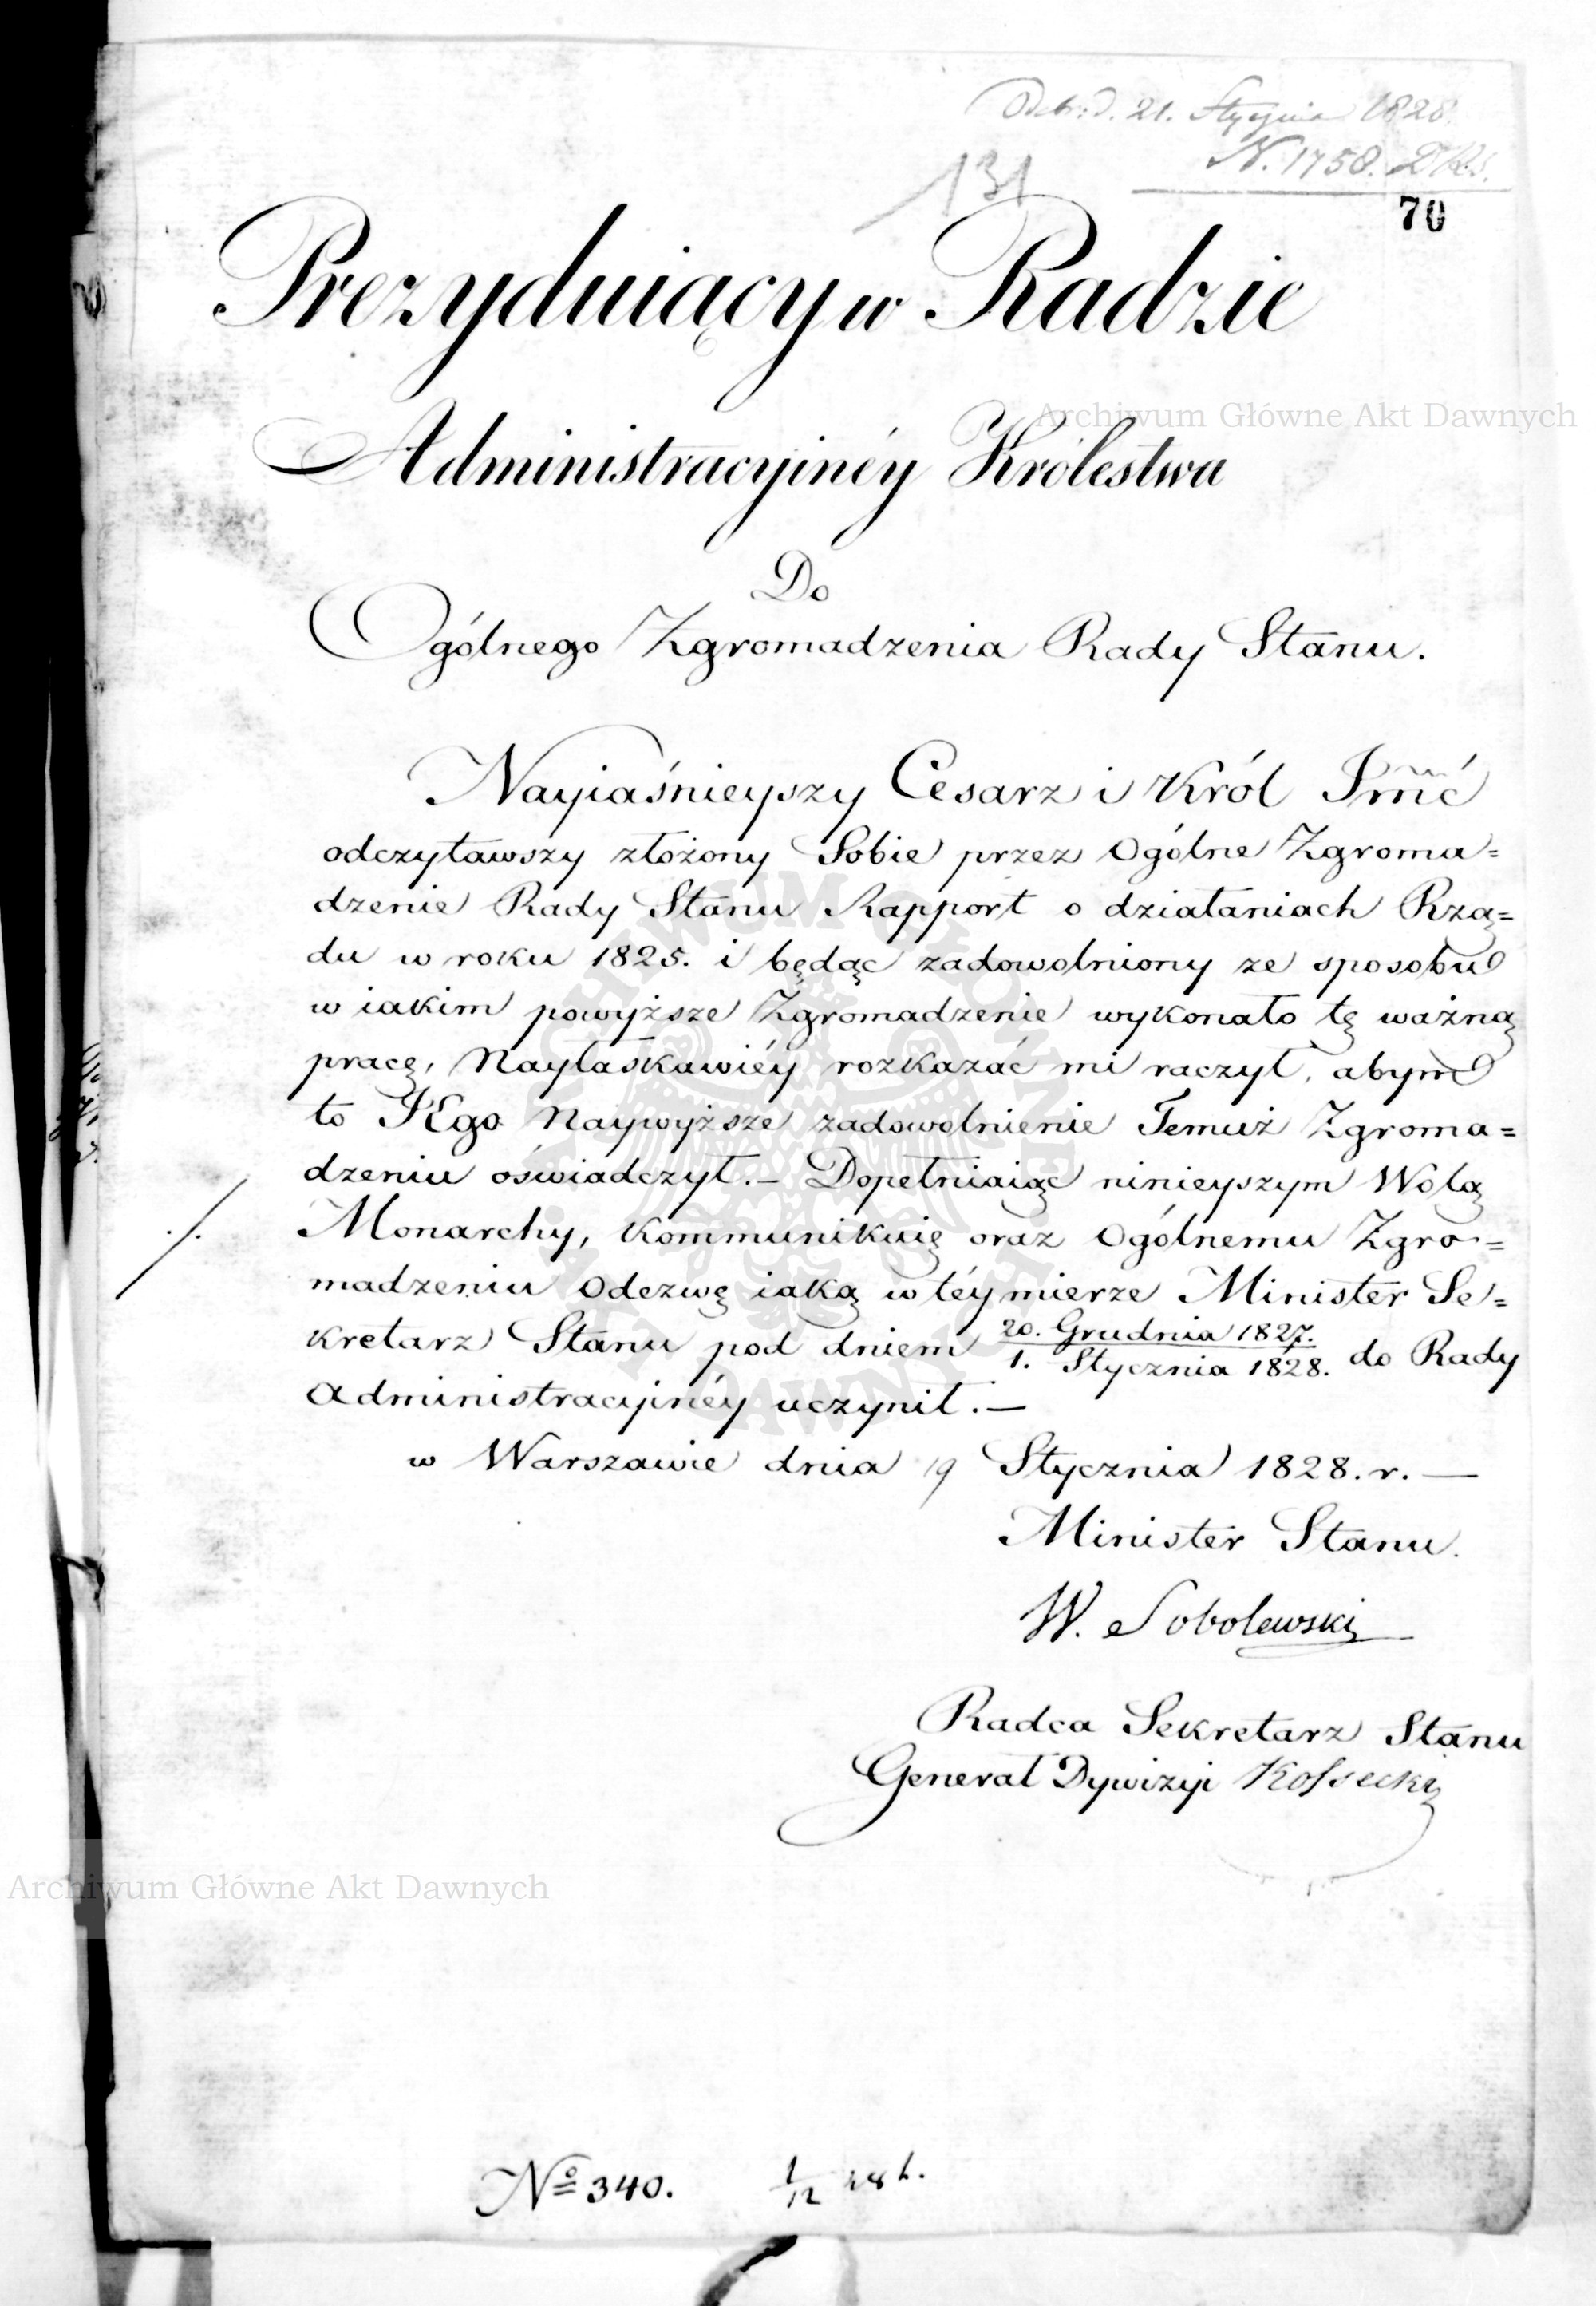 Odebr: d. 21. Stycznia 1828.
N. 1758.
131
70
Prezyduiący w Radzie
Administracyinéy Królestwa
Do
Ogólnego Zgromadzenia Rady Stanu.
Nayiaśnieyszy Cesarz i Król Jmć
odczytawszy złożony Sobie przez Ogólne Zgroma=
dzenie Rady Stanu Rapport o działaniach Rzą=
du w roku 1825. i będąc zadowolniony ze sposobu
w iakim powyższe Zgromadzenie wykonało tę ważną
pracę, Nayłaskawiéy rozkazać mi raczył, abym
to JEgo Naywyższe zadowolnienie Temuż Zgroma=
dzeniu oświadczył.— Dopełniaiąc ninieyszym Wolą
Monarchy, kommunikuię oraz Ogólnemu Zgro=
madzeniu Odezwę iaką w téy mierze Minister Se=
kretarz Stanu pod dniem 20. Grudnia 1827. / 1. Stycznia 1828. do Rady
Administracyinéy uczynił.—
w Warszawie dnia 19 Stycznia 1828. r.—
Minister Stanu.
W. Sobolewski
Radca Sekretarz Stanu
Generał Dywizyi Kossecki
№ 340.
Archiwum Główne Akt Dawnych
Archiwum Główne Akt Dawnych
ARCHIWUM GŁÓWNE AKT DAWNYCH